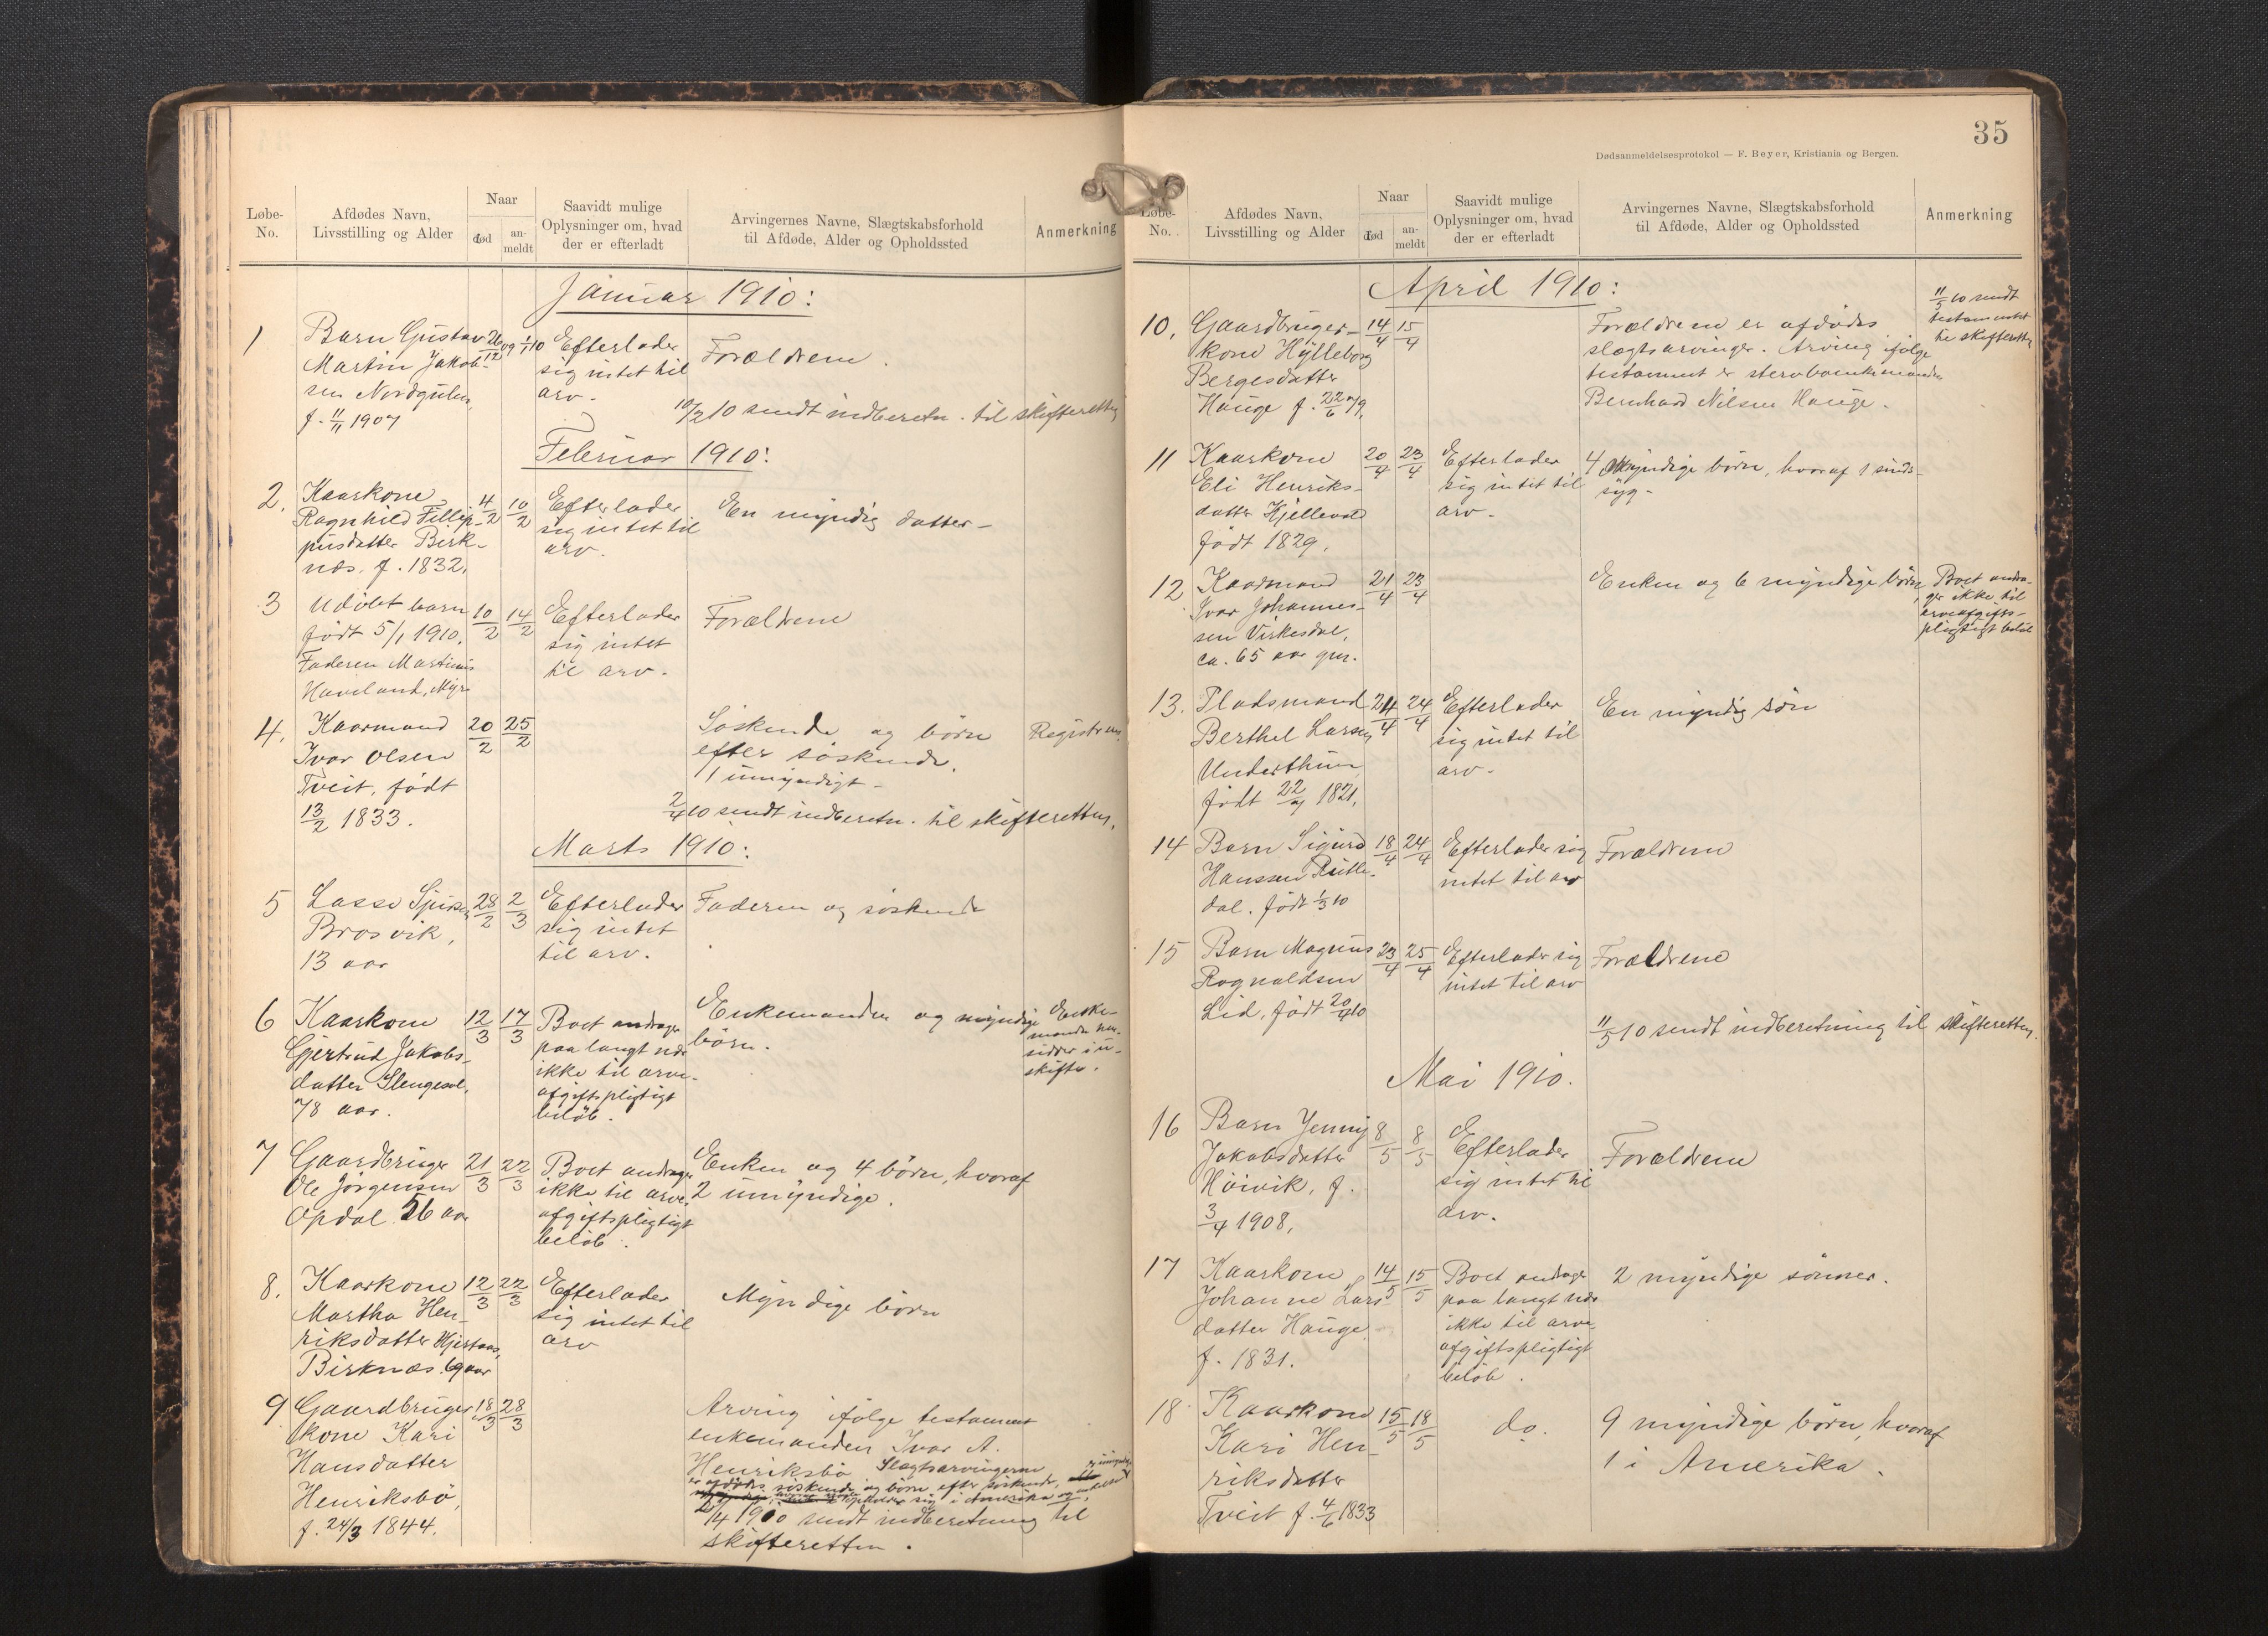 Løbe-No.
Afdødes Navn, Livsstilling og Alder
Naar
død
an-meldt
Saavidt mulige Oplysninger om, hvad der er efterladt
Arvingernes Navne, Slægtskabsforhold til Afdøde, Alder og Opholdssted
Anmerkning
Januar 1910:
1
Barn Gustav
Martin Jakob-
sen Nordgulen,
f. 11/11 1907
26/12 09
1/1 10
Efterlader
sig intet til
arv.
Forældrene.
10/2 10 sendt indberetn. til skifteretten
Februar 1910:
2.
Kaarkone
Ragnhild Fillip-
pusdatter Birk-
næs. f. 1832.
4/2
10/2
Efterlader
sig intet til
arv.
En myndig datter-
3
Udöbt barn
födt 5/1 1910.
Faderen Martinus
Haveland, Myr
10/2
14/2
Efterlader
sig intet
til arv.
Forældrene
4.
Kaarmand
Ivar Olsen
Tveit, födt
13/2 1833.
20/2
25/2
Söskende og börn
efter söskende.
1 umyndigt-
2/4 10 sendt indberetn. til skifteretten.
Marts 1910:
5
Lasse
Brosvik,
13 aar
28/2
2/3
Efterlader
sig intet
til arv.
Faderen og söskende
6
Kaarkone
Gjertrud Jakobs-
datter
78 aar.
12/3
17/3
Boet andrager
paa langt nær
ikke til arve-
afgiftspligtigt
belöb.
Enkemanden og myndige
börn.
Enke-
manden hen-
sidder i u-
skifte.
7
Gaardbruger
Ole Jörgensen
Opdal 56 aar
21/3
22/3
Boet andrager
ikke til arve-
afgiftspligtigt
belöb.
Enken og 4 börn, hvoraf
2 umyndige.
8.
Kaarkone
Martha Hen-
riksdatter Hjertaas,
Birknæs. 69 aar
12/3
22/3
Efterlader
sig intet til
arv
Myndige börn
9
Gaardbruger
kone Kari
Hansdatter
Henriksbö,
f. 24/3 1844.
18/3
28/3
Arving ifölge testament
enkemanden Ivar A.
Henriksbö Slægtsarvingerne
er afdödes söskende og börn efter söskende,
opholder sig i Amerika
2/4 1910 sendt indberetning til
skifteretten.
35
Dødsanmeldelsesprotokol — F. Beyer, Kristiania og Bergen.
Løbe-No.
Afdødes Navn, Livsstilling og Alder
Naar
død
an-meldt
Saavidt mulige Oplysninger om, hvad der er efterladt
Arvingernes Navne, Slægtskabsforhold til Afdøde, Alder og Opholdssted
Anmerkning
April 1910:
10.
Gaardbruger-
kone Hylleborg
Bergesdatter
Hauge f. 22/6
14/4
15/4
Forældrene er afdödes
slægtsarvinger. Arving ifölge
testament er sterboenkemanden
Bernhard Nilsen Hauge.
11/5 10 sendt
testamentet
til skifteretten
11
Kaarkone
Eli Henriks-
datter Kjellevold
födt 1829.
20/4
23/4
Efterlader
sig intet til
arv.
4 myndige börn, hvoraf 1 sinds-
syg-
12
Kaarmand
Ivar Johannes-
sen Virkesdal,
ca. 65 aar gm.
21/4
23/4
Enken og 6 myndige börn,
Boet andra-
ger ikke til
arveafgifts-
pligtigt belöb
13.
Pladsmand
Berthel Larsen
Underthun
födt 22/9 1821.
21/4
24/4
Efterlader
sig intet til
arv.
En myndig sön
14
Barn Sigurd
Hanssen Rutle-
dal. födt 1/3 10
18/4
24/4
Efterlader sig
intet til arv
Forældrene
15
Barn Magnus
Ragnvaldsen
Lid, födt 20/4 10
23/4
25/4
Efterlader sig
intet til arv
Forældrene
11/5 10 sendt indberetning til skifteretten.
Mai 1910.
16
Barn Jenny
Jakobsdatter
Höivik, f.
3/4 1908.
8/5
8/5
Efterlader
sig intet til
arv.
Forældrene
17
Kaarkone
Johanne Lars-
datter Hauge
f. 1831.
14/5
15/5
Boet andrager
paa langt nær
ikke til arve-
afgiftspligtigt
belöb.
2 myndige sönner.
18
Kaarkone
Kari Hen-
riksdatter
Tveit f. 4/6 1833
15/5
18/5
do.
9 myndige börn, hvoraf
1 i Amerika.